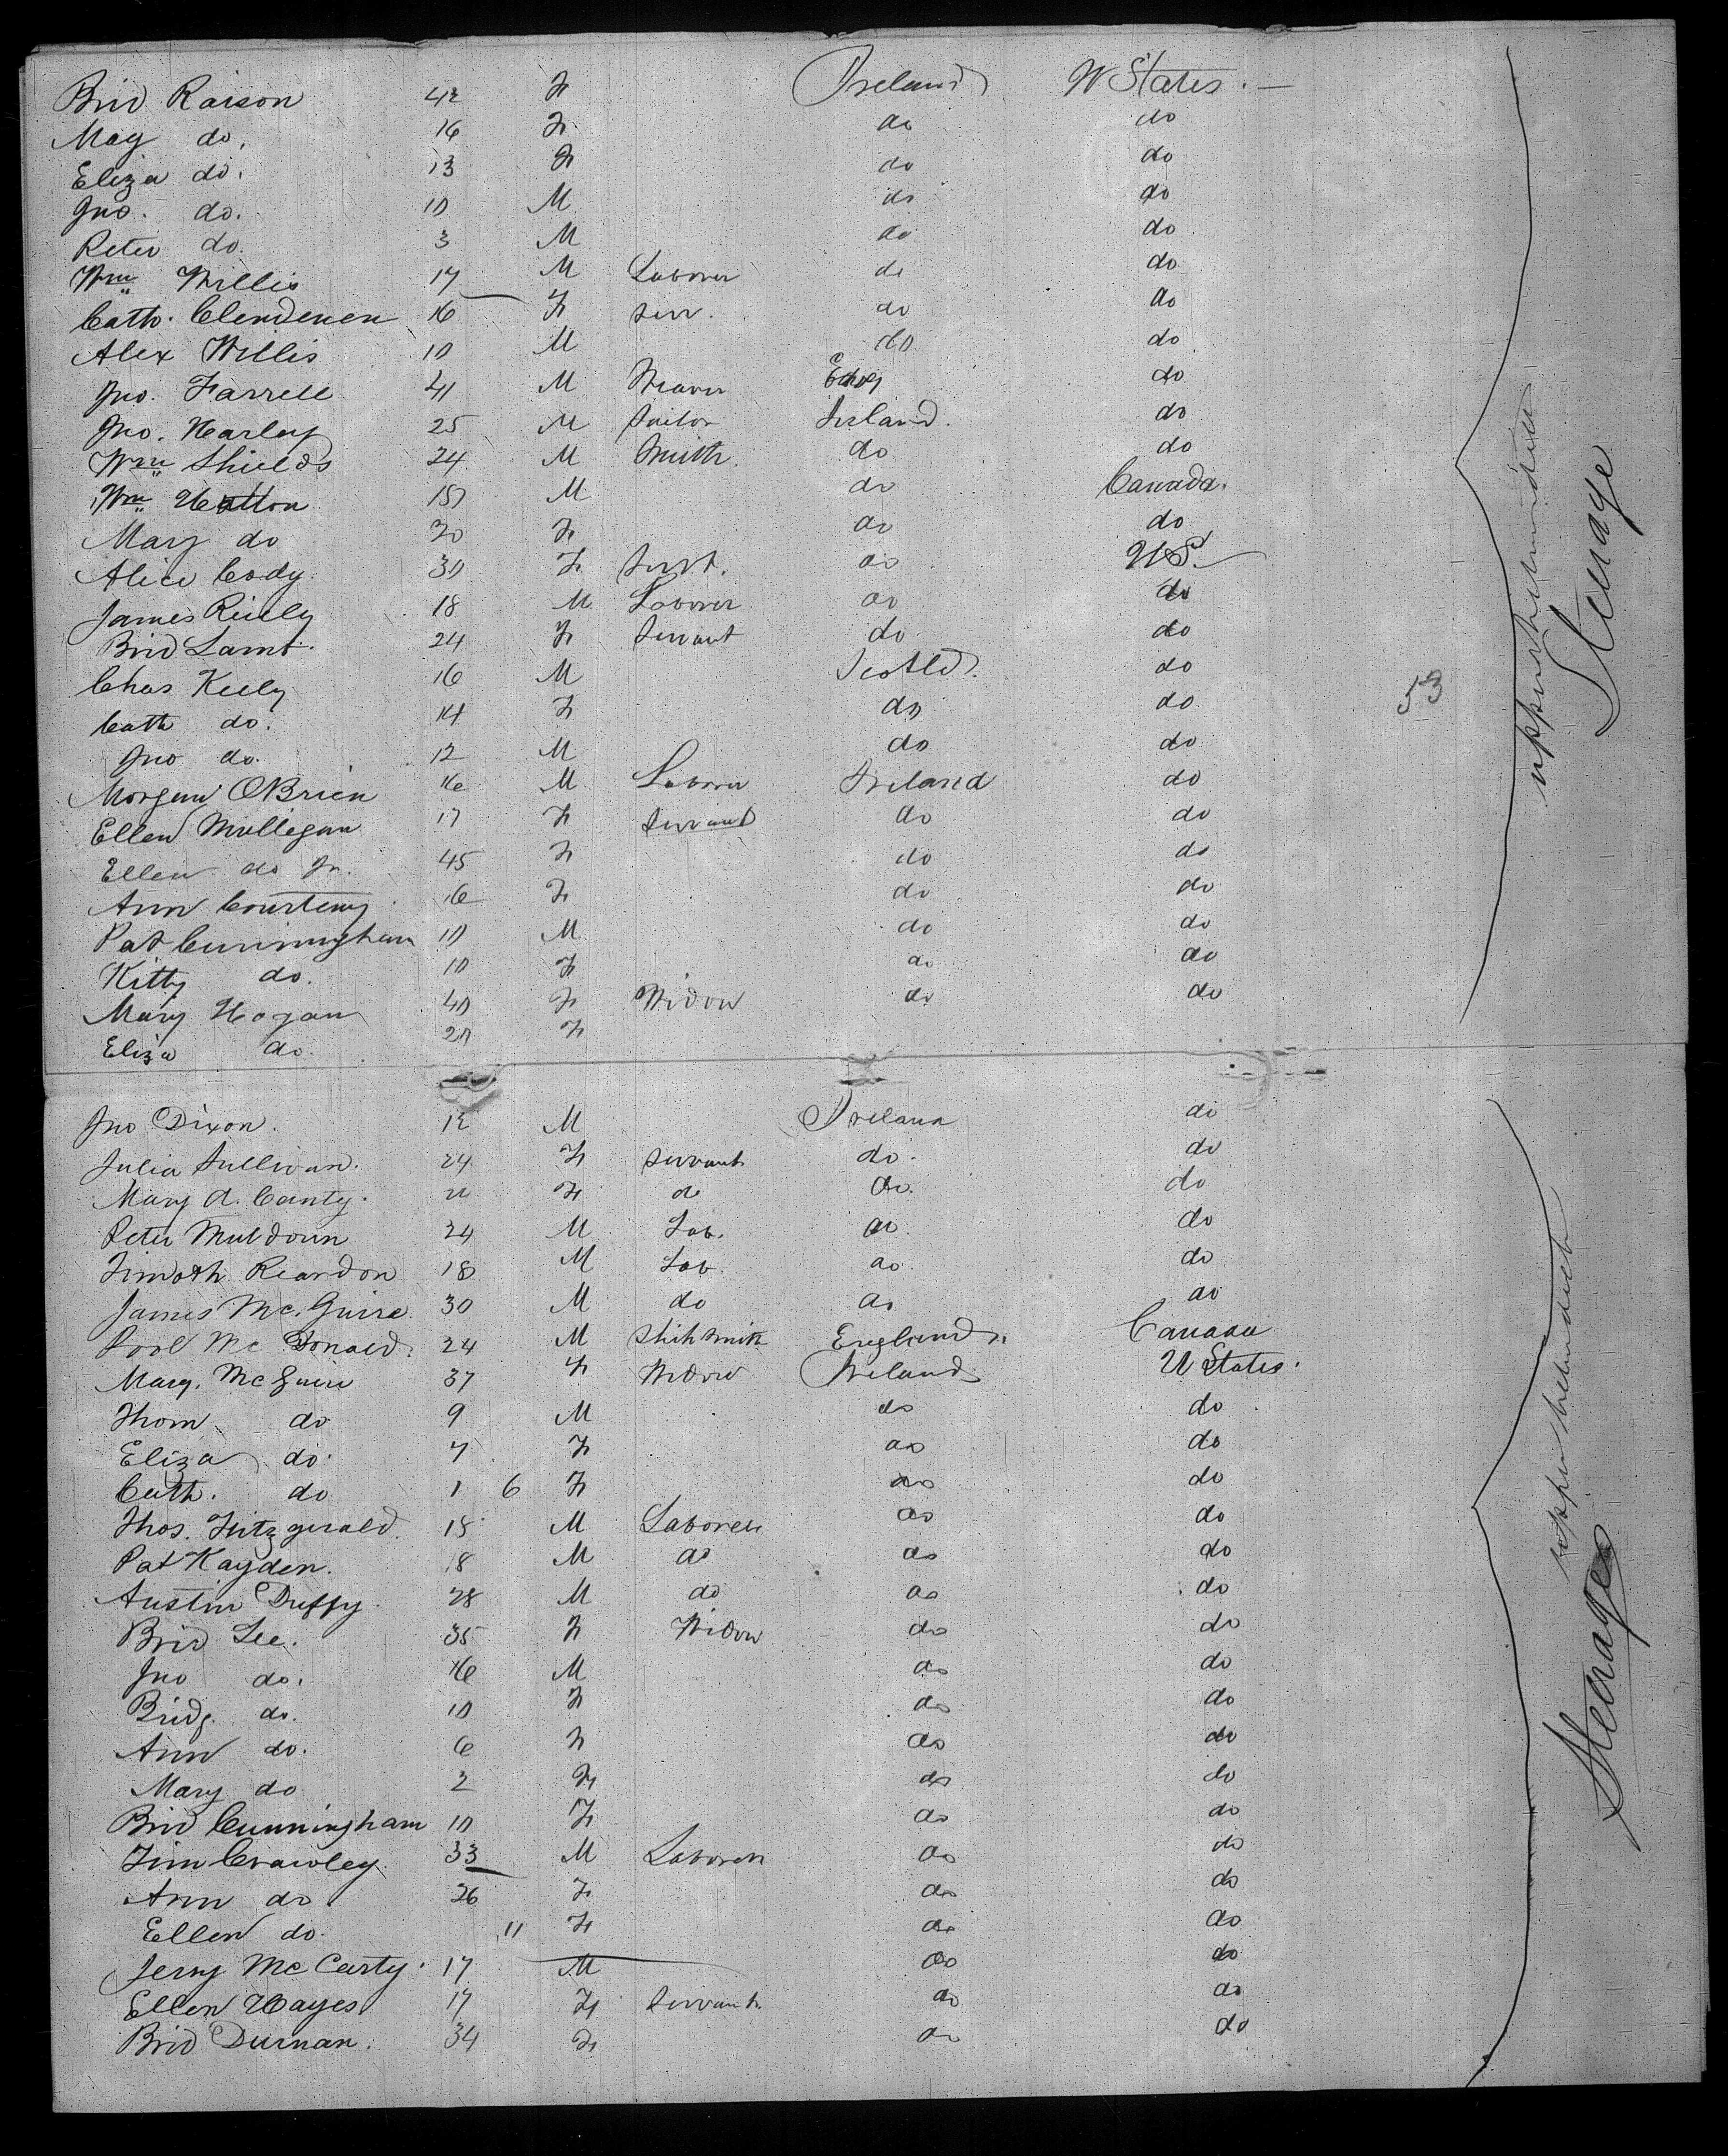 Brid Raison 42 F Ireland U States. —
May do. 16 F do do
Eliza do. 13 F do do
Jno. do. 10 M do do
Peter do. 3 M do do
Wm Willis 17 M Laborer do do
Cath. Clendenen 16 F serv. do do
Alex Willis 10 M do do
Jno. Farrell 41 M Weaver do
Jno. Harley 25 M Tailor Ireland. do
Wm Shields 24 M Smith. do do
Wm Hatton M do Canada.
Mary do 20 F do do
Alice Cody. 30 F Servt. do US.
James Reilly 18 M Laborer do do
Brid Lamt. 24 F Servant do do
Chas Keely 16 M Scotld. do
Cath do. 14 F do do
Jno do. 12 M do do
Morgan OBrien 16 M Laborer Ireland do
Ellen Mulligan 17 F Servant do do
Ellen do Jr. 45 F do do
Ann Courteny 16 F do do
Pat Cunningham 10 M do do
Kitty do. 10 F do do
Mary Hogan 40 F Widow do do
Eliza do. 20 F
53
upper between decks
Steerage
Jno Dixon. 12 M Ireland do
Julia Sullivan. 24 F servant do. do
Mary A. Canty. F do do. do
Peter Muldoon 24 M Lab. do. do
Timoth Reardon 18 M Lab. do. do
James McGuire 30 M do do do
McDonald. 24 M England. Canada
Marg. McGuire 37 F Widow Ireland U States.
Thom do 9 M do do
Eliza do. 7 F do do
Cath. do 1 6 F do do
Thos. Fitzgerald. 18 M Laborer do do
Pat Hayden. 18 M do do do
Austin Duffy. 28 M do do do
Brid Lee. 35 F Widow do do
Jno do. 16 M do do
Bridg. do. 10 F do do
Ann do. 6 F do do
Mary do 2 F do do
Brid Cunningham 10 F do do
Tim Crawley. 33 M Laborer do do
Ann do 26 F do do
Ellen do. 11 F do do
Jerry McCarty. 17 M do do
Ellen Hayes 17 F servant do do
Brid Durnan. 34 F do do
upper between decks
Steerage